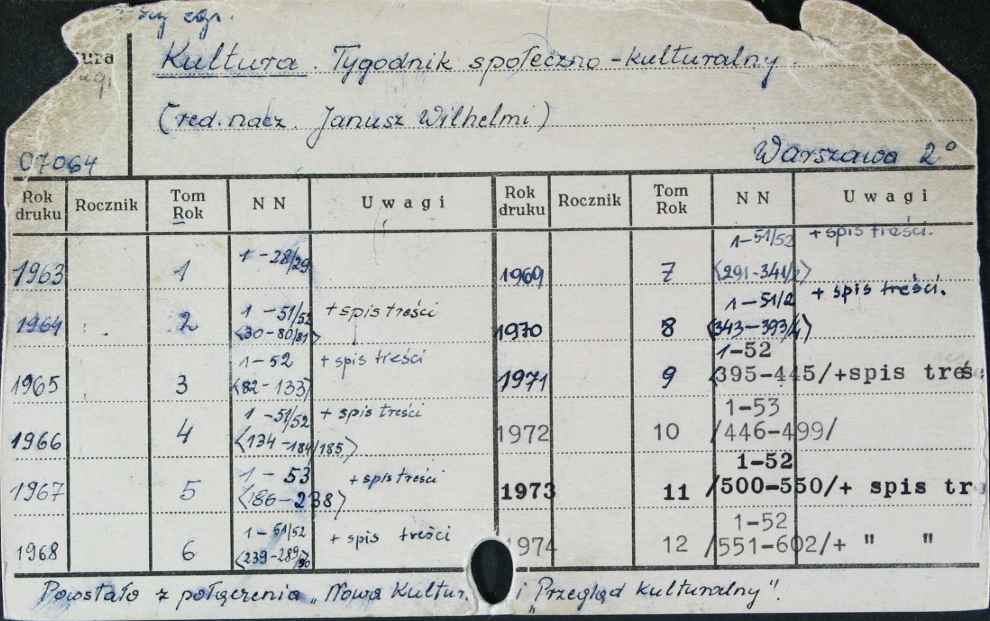 zdj. egz.
Kultura. Tygodnik społeczno-kulturalny.
(red. nacz. Janusz Wilhelmi)
07064 Warszawa 2°
Rok druku Rocznik Tom Rok NN Uwagi Rok druku Rocznik Tom Rok NN Uwagi
1963 1 1-28/29
1964 2 1-51/52 <30-80/81> + spis treści
1965 3 1-52 <82-133> + spis treści
1966 4 1-51/52 <134-184/185> + spis treści
1967 5 1-53 <186-238> + spis treści
1968 6 1-51/52 <239-289/90> + spis treści
1969 7 1-51/52 <291-341/2> + spis treści.
1970 8 1-51/2 <343-393/4> + spis treści.
1971 9 1-52 <395-445/+spis treś
1972 10 1-53 /446-499/
1973 11 1-52 /500-550/+ spis tr
1974 12 1-52 /551-602/+ " "
Powstało z połączenia „Nowa Kultur. i „Przegląd Kulturalny".